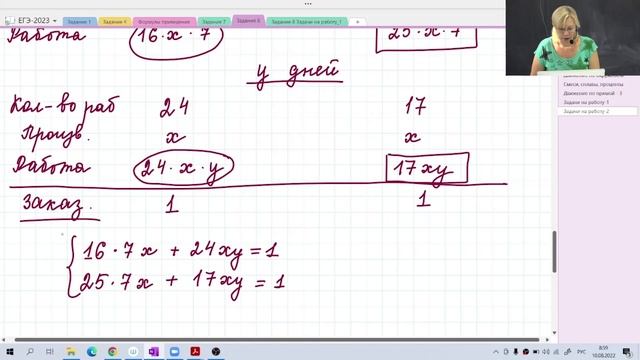 ЕГЭ-2023
Задание 1
Задание 4
Формулы приведения
Задание 7
Задание 6
Задание 8 Задачи на работу_1
Работа 16·x·7 25·x·7
y дней
Кол-во раб 24 17
Произв. x x
Работа 24·x·y 17xy
Заказ. 1 1
16·7x + 24xy = 1
25·7x + 17xy = 1
Смеси, сплавы, проценты
Движение по прямой - 1
Задачи на работу 1
Задачи на работу 2
РУС
8:59
10.08.2022